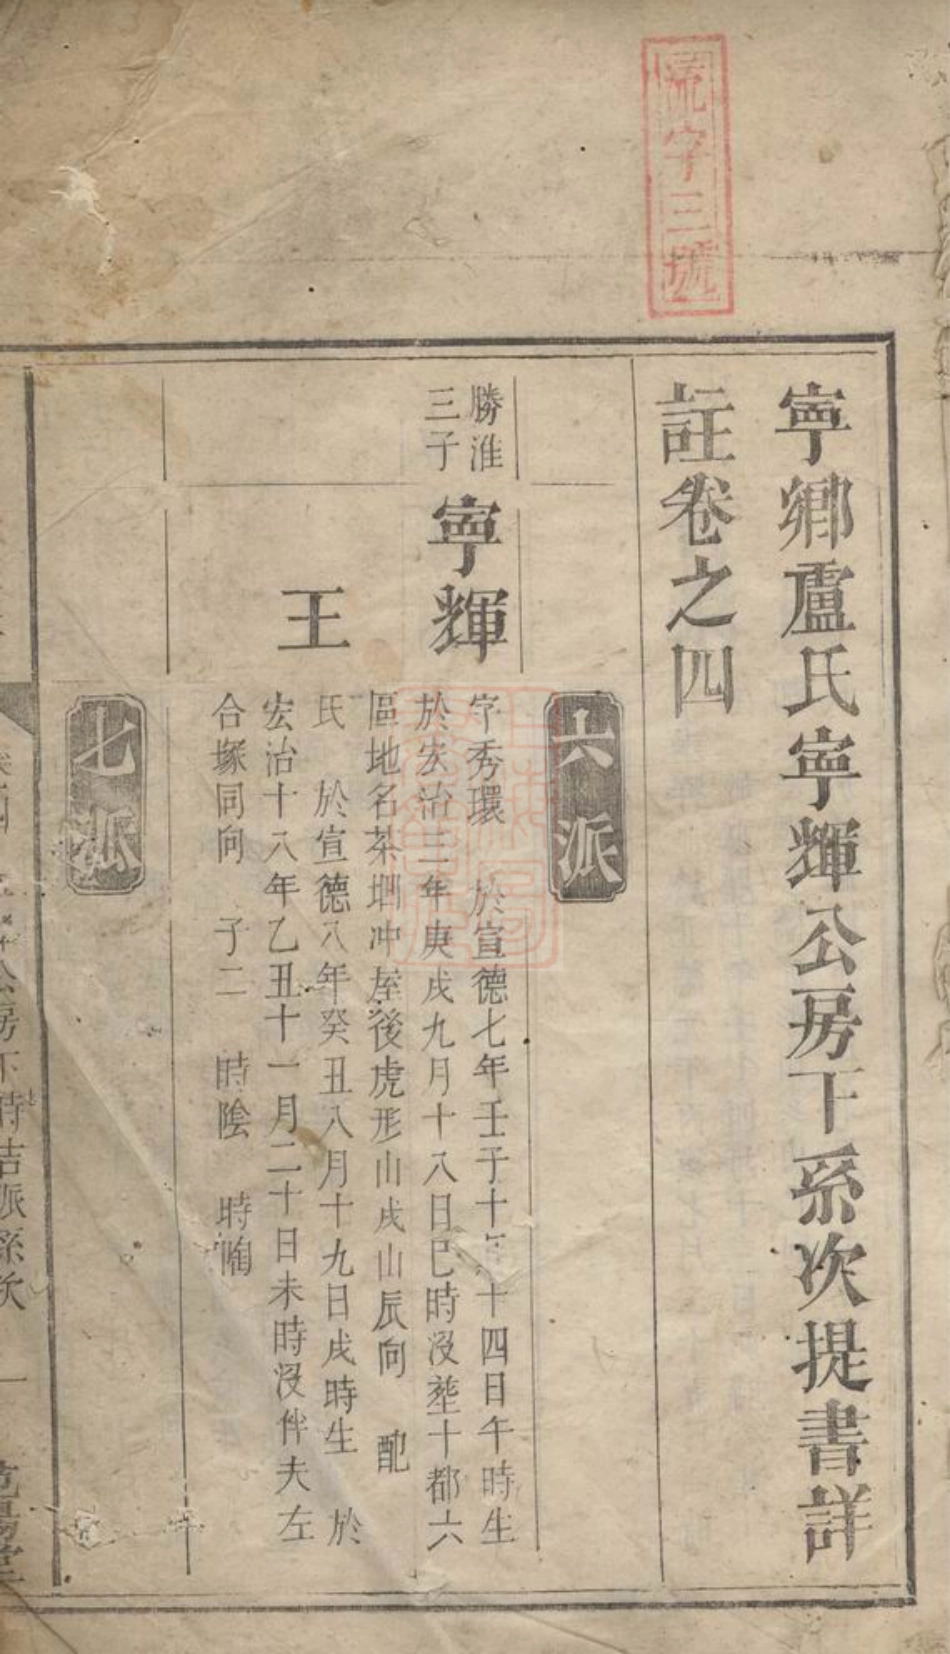 流字三號
寧鄉盧氏寧輝公房下系次提書詳
註卷之四
六派
勝淮
三子
寧輝
字秀環 於宣德七年壬子十年十四日午時生
於宏治三年庚戌九月十八日巳時沒塟十都六
區地名茶圳冲屋後虎形山戌山辰向 配
王
氏 於宣德八年癸丑八月十九日戌時生 於
宏治十八年乙丑十一月二十日未時沒伴夫左
合塚同向 子二 時陰 時陶
七派
公房下時吉派系次 一